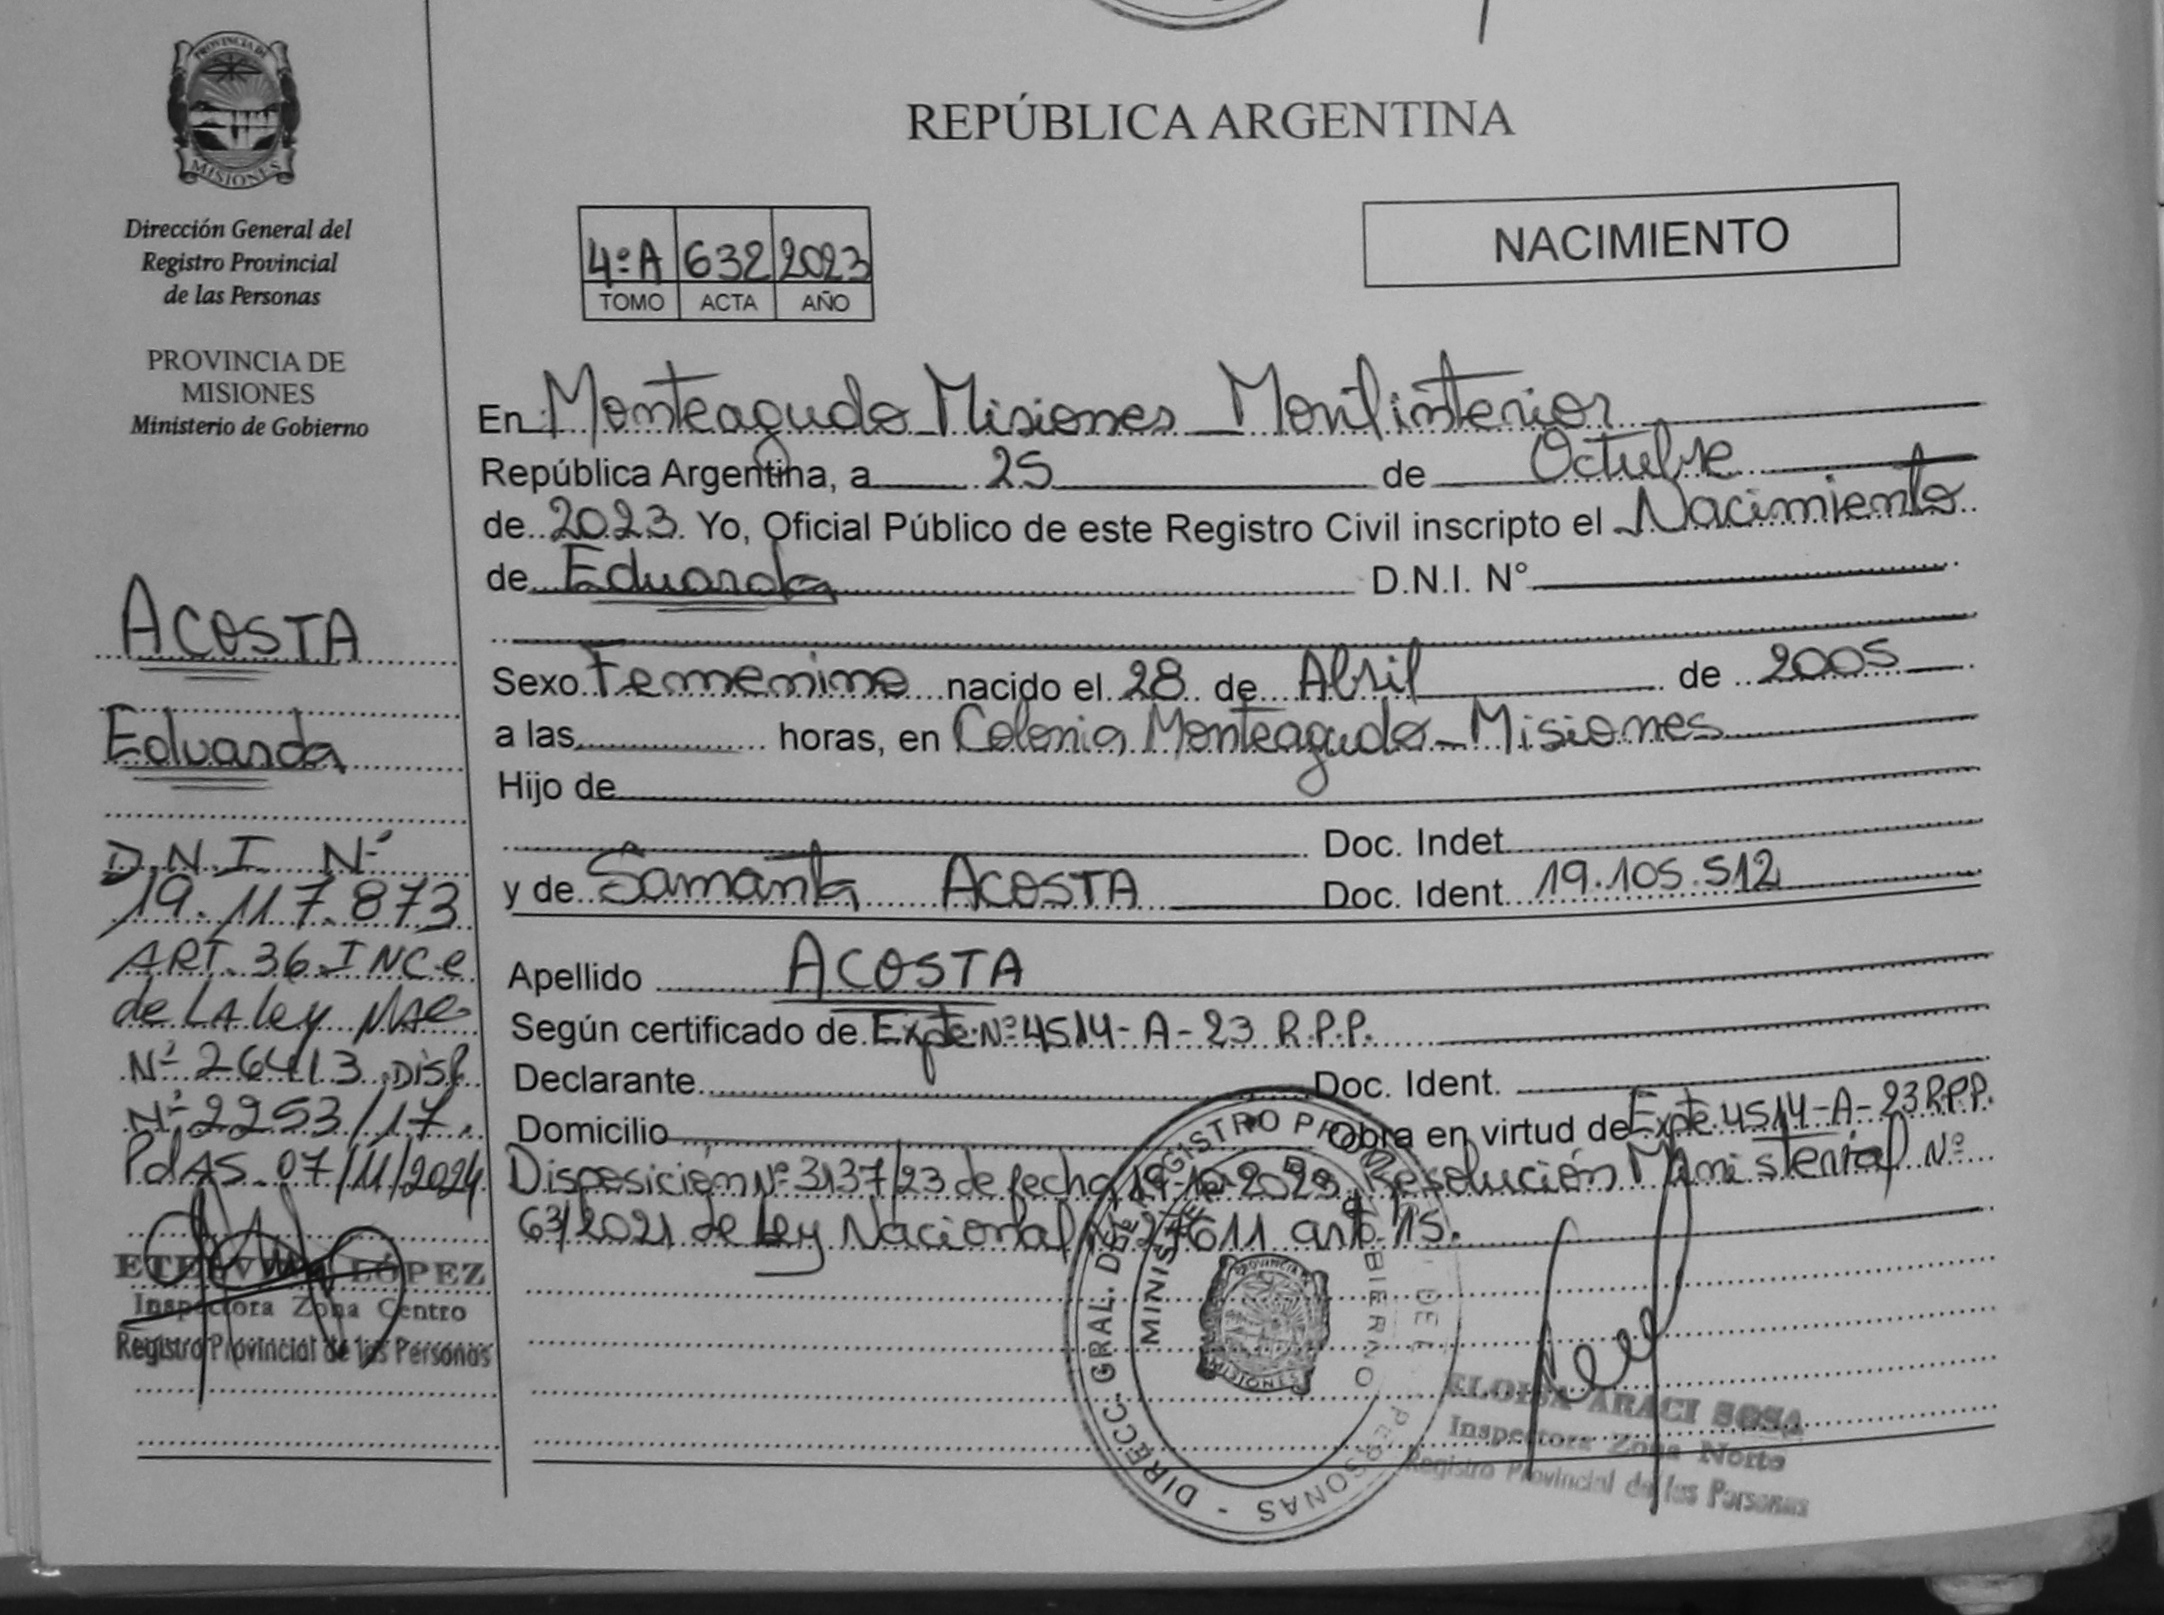 PROVINCIA DE
MISIONES
Dirección General del
Registro Provincial
de las Personas
PROVINCIA DE
MISIONES
Ministerio de Gobierno
ACOSTA
Eduarda
D.N.I. Nº
19.117.873
ART. 36 INC e
de LA ley NAC
Nº 26413 DISP.
Nº 2253/17.
PdAS. 07/11/2024
LÓPEZ
Inspectora Zona Centro
Registro Provincial de las Personas
REPÚBLICA ARGENTINA
4ºA 632 2023
TOMO ACTA AÑO
NACIMIENTO
En Monteagudo Misiones Movil interior
República Argentina, a 25 de Octubre
de 2023 Yo, Oficial Público de este Registro Civil inscripto el Nacimiento
de Eduarda D.N.I. N°
Sexo Femenino nacido el 28 de Abril de 2005
a las horas, en Colonia Monteagudo - Misiones
Hijo de
Doc. Indet
y de Samanta ACOSTA Doc. Ident. 19.105.512
Apellido ACOSTA
Según certificado de Expte Nº 4514-A-23 R.P.P.
Declarante Doc. Ident.
Domicilio Obra en virtud de Expte. 4514-A-23 R.P.P.
Disposición Nº 3137/23 de fecha 19-10-2023, Resolución Ministerial Nº
63/2021 de Ley Nacional 27611 art. 15.
DIRECC. GRAL. DEL REGISTRO PROVINCIAL DE PERSONAS
MINISTERIO DE GOBIERNO
PROVINCIA DE
MISIONES
ELOISA ARACI SOSA
Inspectora Zona Norte
Registro Provincial de las Personas